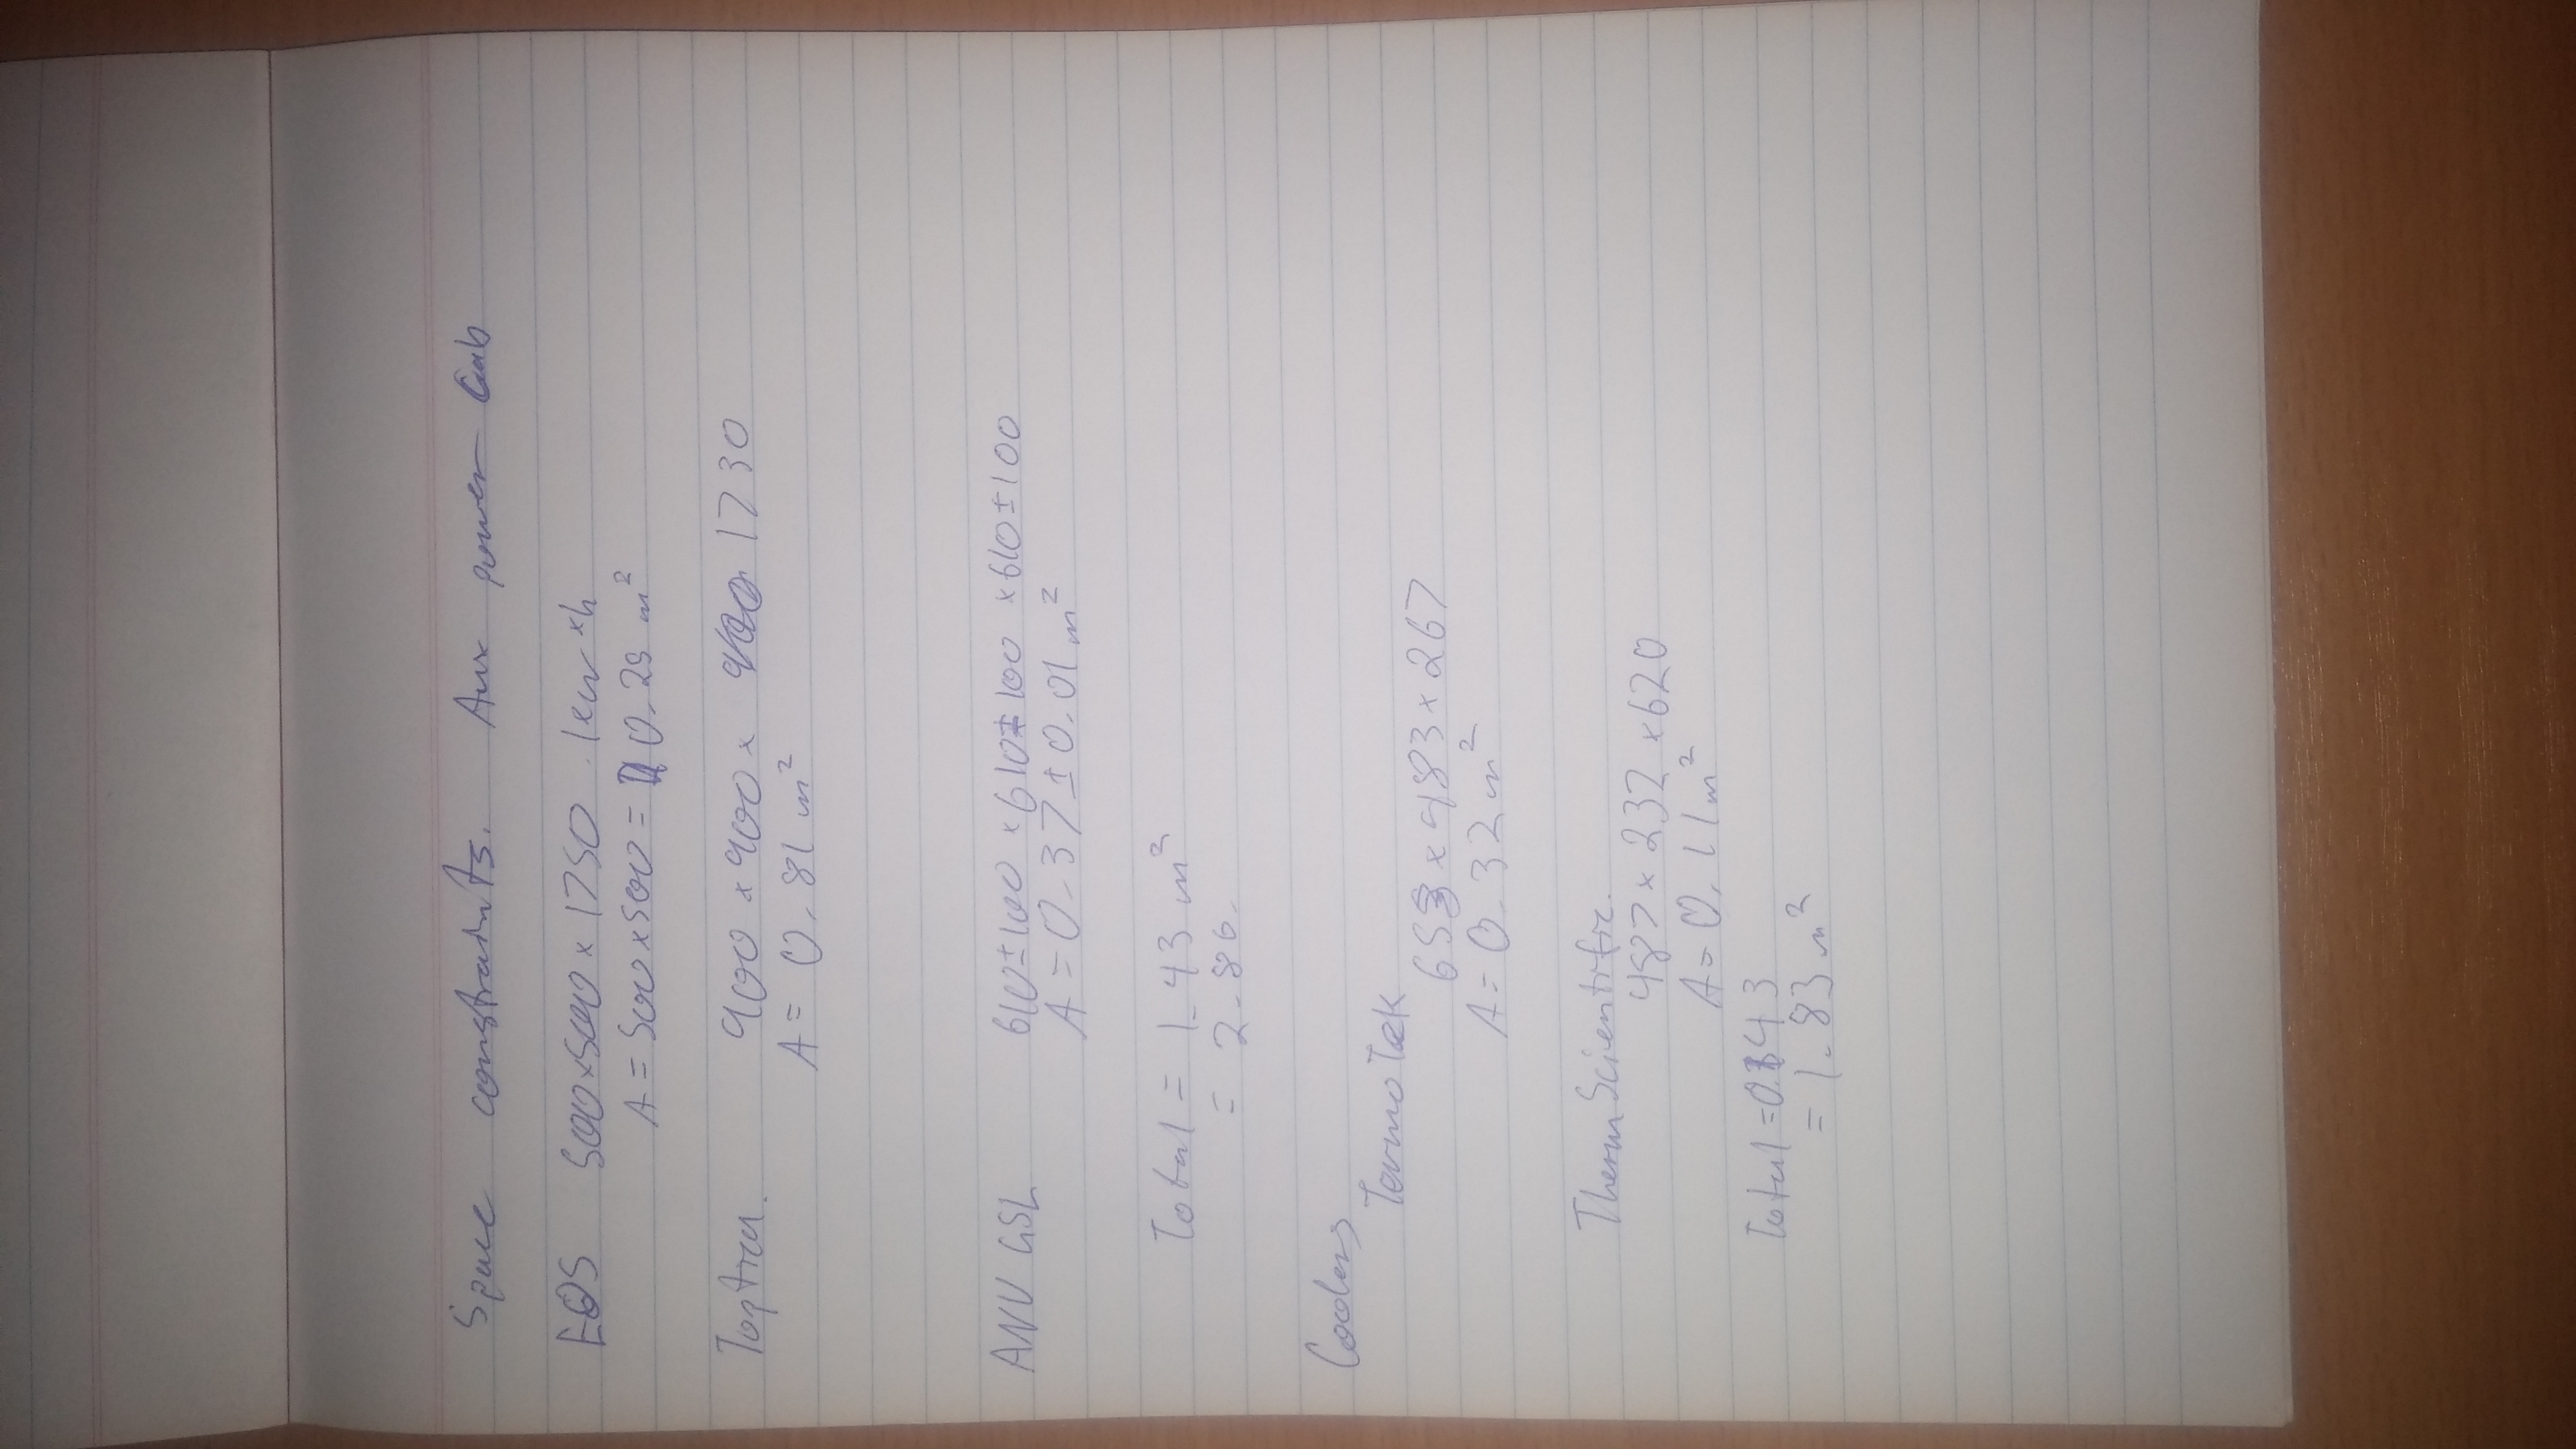 Space constraints. Aux power Lab
EOS 500x500 x 1750 . lxwxh
A = 500x500 = 0.25 m²
Toptica. 900 x 900 x 1730
A = 0.81 m²
ANU GSL 610±100 x 610±100 x 610±100
A = 0.37 ± 0.01 m²
Total = 1.43 m²
= 2.86.
Coolers
TermoTek
653 x 483 x 267
A = 0.32 m²
ThermScientific.
487 x 232 x 620
A = 0.11 m²
Total = 0.43
= 1.83 m²